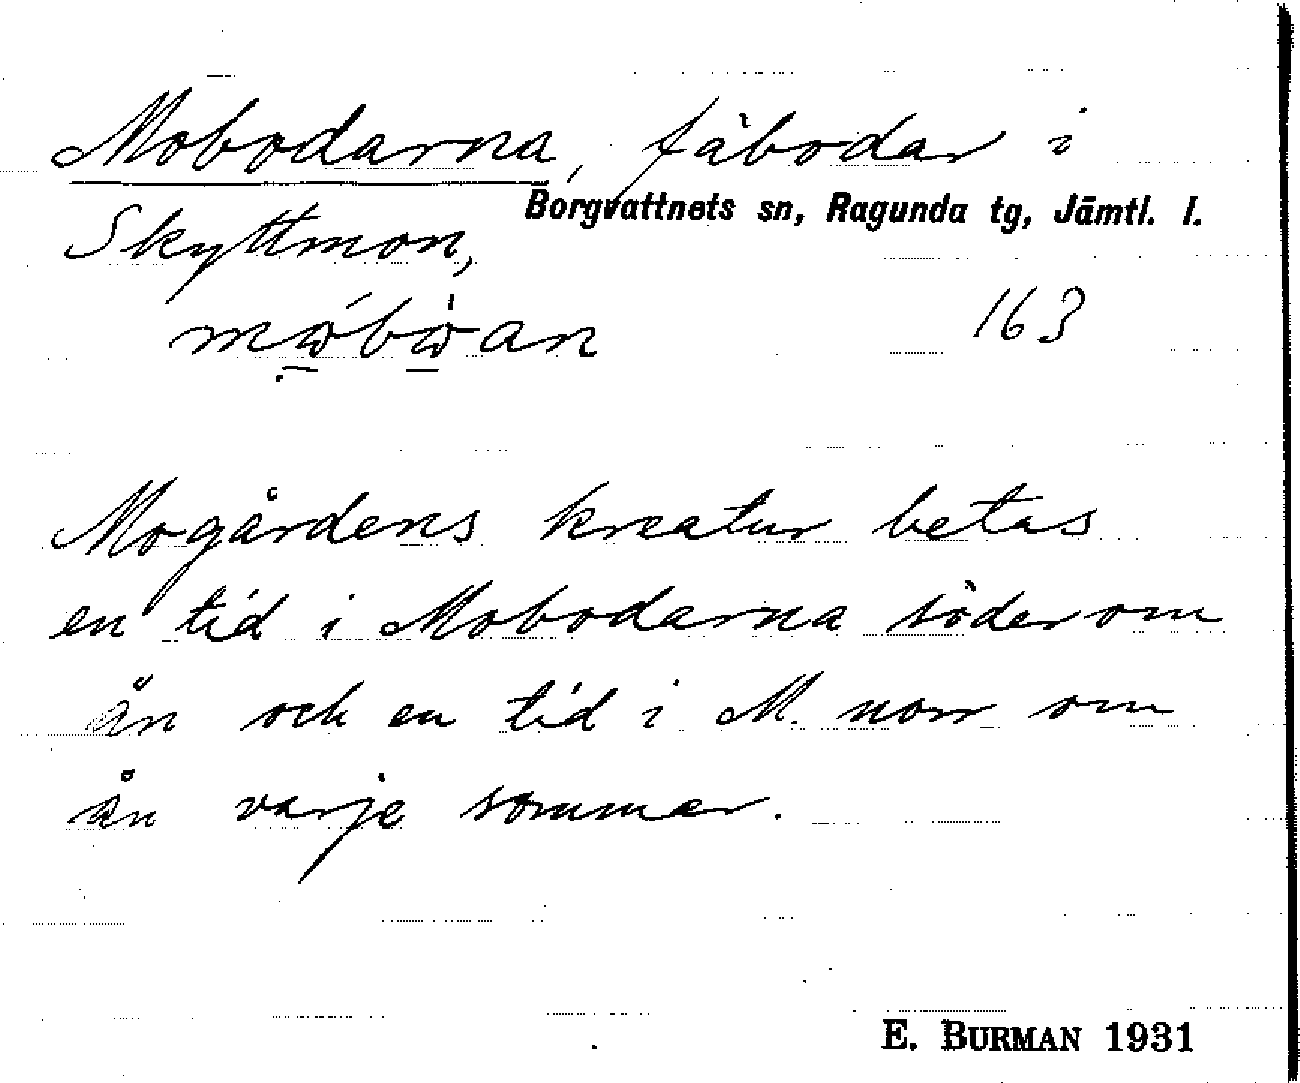 Mobodarna, fäbodar i
Borgvattnets sn, Ragunda tg, Jämtl. l.
Skyttmon,
163
Mogårdens kreatur betas
en tid i Mobodarna söder om
ån och en tid i M. norr om
ån varje sommar.
E. BURMAN 1931